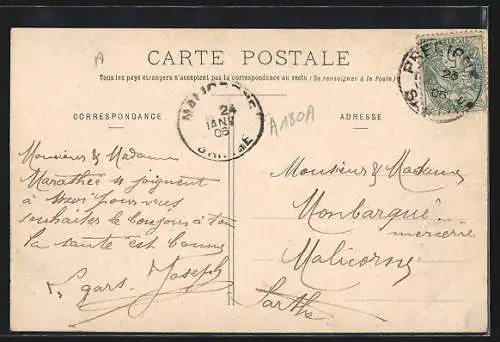 A
CARTE POSTALE
Tous les pays étrangers n'acceptent pas la correspondance au recto (Se renseigner à la Poste)
CORRESPONDANCE
ADRESSE
24
JANV
05
SARTHE
A180A
23
05
Monsieur & Madame
Marathée joignent
à pour vous
souhaiter le bonjour à tou
la santé est bonne
gars Joseph
Monsieur & Madame
Monbarqué
mercerie
Malicorne
Sarthe